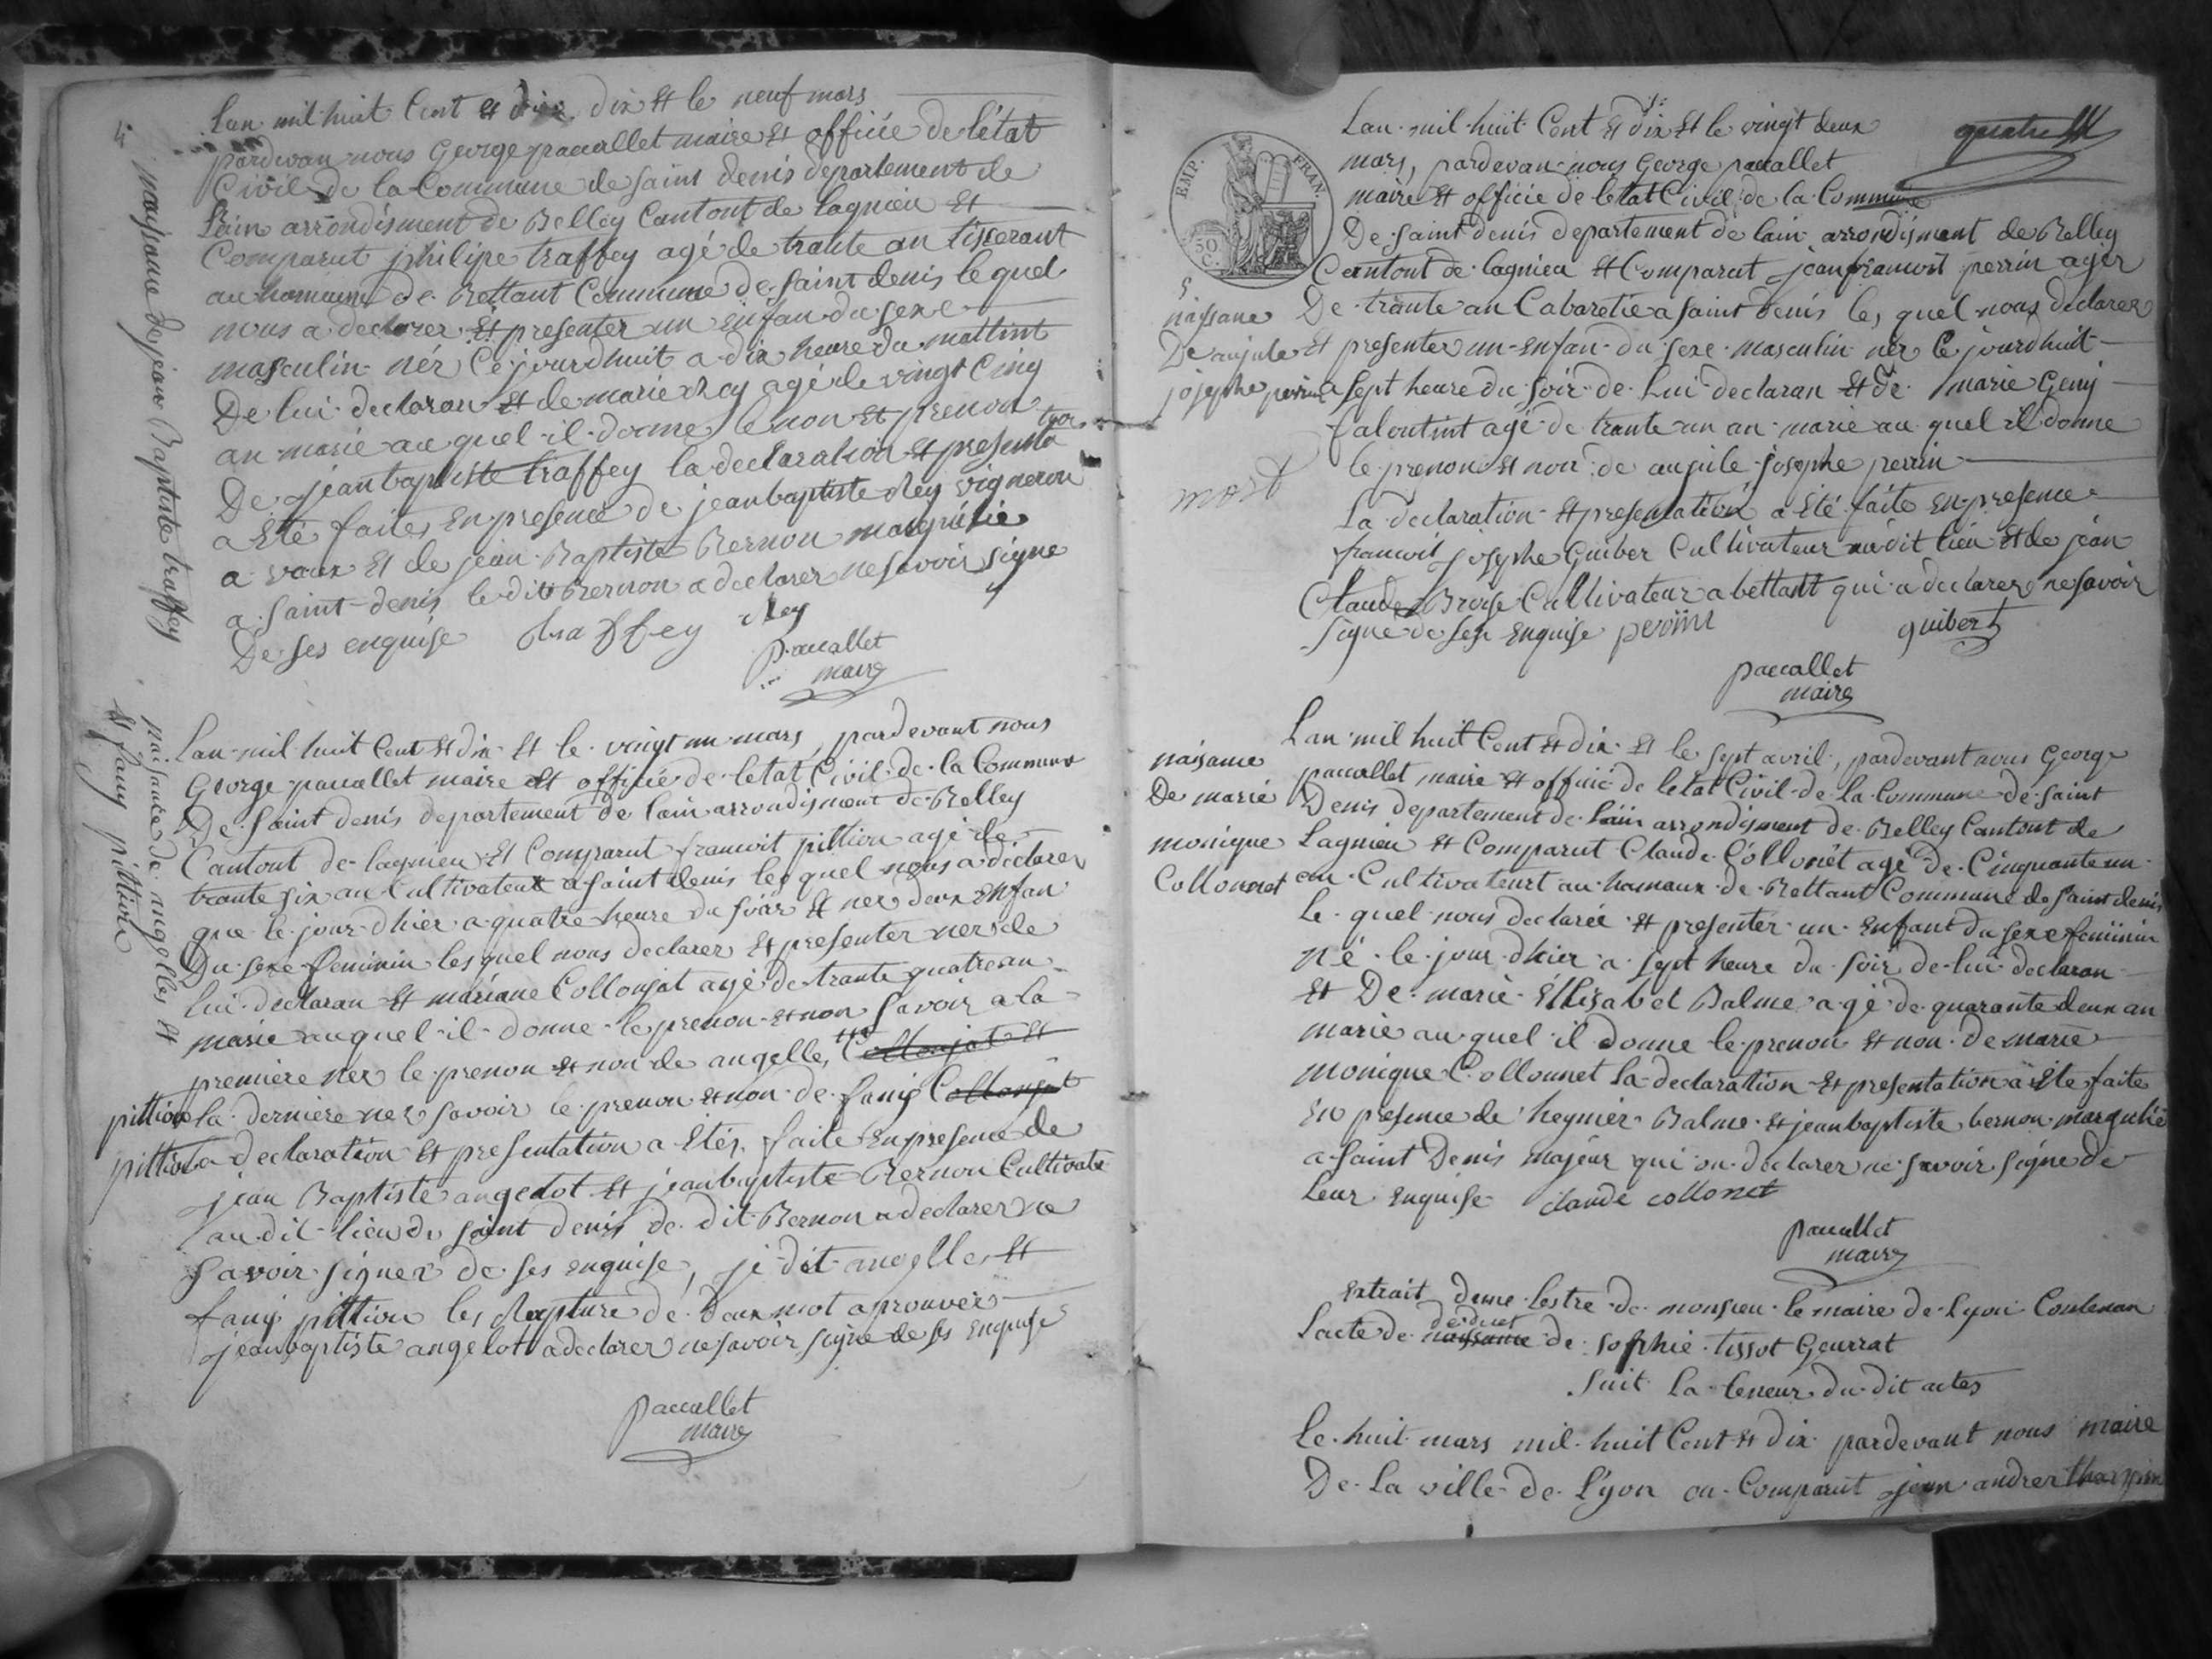 4
naissanne de jean Baptiste traffey
Lan mil huit Cent et dix et le neuf mars
pardevan nous George paucallet maire et officie de létat
Civil de la Commune de saint denis departement de
Lain arrondisment de Belley Cantont de lagnieu et
Comparut philipe traffey agé de trante an tisserant
au hamaux de Bettant Commune de saint denis le quel
nous a declarer et presenter un enfan du sexe
masculin nér Ce jourdhuit a dix heure du mattint
De lui declaran et de marie Rey agé de vingt Cinq
an marie au quel il donne le non et prenon
De jean baptiste traffey la declaration et presenta
tion
a Eté faite En presence de jean baptiste Rey vigneron
a vaux et de jean Baptiste Bernon margulié
a saint denis le dit Bernon a declarer ne savoir signe
De ses enquise traffey Rey
paucallet
maire
naisance de angelles et
et fany pittion
Lan mil huit Cent et dix et le vingt un mars, pardevant nous
George paucallet maire et officié de letat Civil de la Commune
De saint denis departement de lain arrondisment de Belley
Cantont de lagnieu et Comparut francoit pittion agé de
trante six an Cultivateur a saint denis les quel nous a déclarer
que le jour dhier a quatre heure du soir et ner deux enfan
Du sexe feminin les quel nous declarer et presenter ner de
lui declaran et mariane Collonjat agé de trante quatre an
marie au quel il donne le prenon et non savoir a la
premiere ner le prenon et non de angelle, Collonjat et
pittion la derniere ner savoir le prenon et non de fany Collonjat
pittion la declaration et presentation a étér faite en presence de
jean Baptiste angelot et jean baptiste Bernon Cultivate
au dit lieu de saint denis de dit Bernon a declarer ne
savoir signer de ses enquise, je dit angelle et
fany pittion les Rapture de deux mot aprouvér
jean baptiste angelot a declarer ne savoir signe de ses enquise
paucallet
maire
quatre
EMP. FRAN.
50
C.
5
naissane
De anjule
josephe perrin
mort
Lan mil huit Cent et dix et le vingt deux
mars, pardevan nous George paucallet
maire et officie de letat Civil de la Commune
De saint denis departement de lain arrondisment de Belley
Cantont de lagnieu et Comparut jean francoit perrin agér
De trante an Cabaretie a saint denis les quel nous declarer
et presenter un enfan du sexe masculin ner Ce jourdhuit
a sept heure du soir de lui declaran et de marie Geny
falontint agé de trante un an marie au quel il donne
le prenon et non de anjule josephe perrin
La declaration et presentation a été faite En presence
francoit josephe Guiber Cultivateur au dit lieu et de jean
Claude Brorse Cultivateur a bettant qui a declarer ne savoir
signe de ses enquise perrin guibert
paucallet
maire
naisane
De marie
monique
Collonnet
Lan mil huit Cent et dix et le sept avril, pardevant nous George
paucallet maire et officié de letat Civil de la Commune de saint
Denis departement de Lain arrondisment de Belley Cantont de
Lagnieu et Comparut Claude Collonét agé de Cinquante un
an Cultivateurt au hamaux de Bettant Commune de saint denis
Le quel nous declarée et presenter un enfant du sexe feminin
né le jour dhier a sept heure du soir de lui declaran
et De marie Ellisabet Balme agé de quarante deux an
marie au quel il donne le prenon et non de marie
monique Collonnet la declaration et presentation a Ete faite
En presence de heynier Balme et jean baptiste bernon margulié
a saint Denis majeur qui on declarer ne savoir signe de
Leur enquise claude collonet
paucallet
maire
Extrait dune lestre de monsieu le maire de Lyon Contenan
décuet
Lacte de naissance de sophie tissot Geurrat
Suit La teneur du dit actes
Le huit mars mil huit Cent et dix pardevant nous maire
De La ville de Lyon on Comparut jean andrer